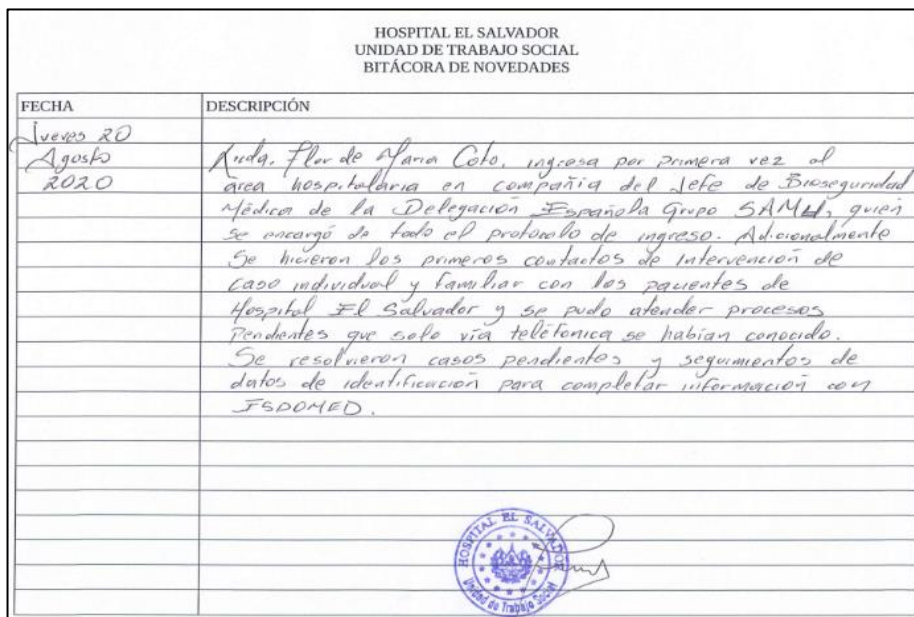 HOSPITAL EL SALVADOR
UNIDAD DE TRABAJO SOCIAL
BITÁCORA DE NOVEDADES
FECHA DESCRIPCIÓN
Jueves 20
Agosto
2020
Licda. Flor de Maria Coto, ingresa por primera vez al
área hospitalaria en compañia del Jefe de Bioseguridad
Médica de la Delegación Española Grupo SAMU, quien
se encargó de todo el protocolo de ingreso. Adicionalmente
Se hicieron los primeros contactos de intervención de
caso individual y familiar con los pacientes de
Hospital El Salvador y se pudo atender procesos
Pendientes que solo vía teléfonica se habían conocido.
Se resolvieron casos pendientes y seguimientos de
datos de identificación para completar información con
ISDOMED.
HOSPITAL EL SALVADOR
Unidad de Trabajo Social